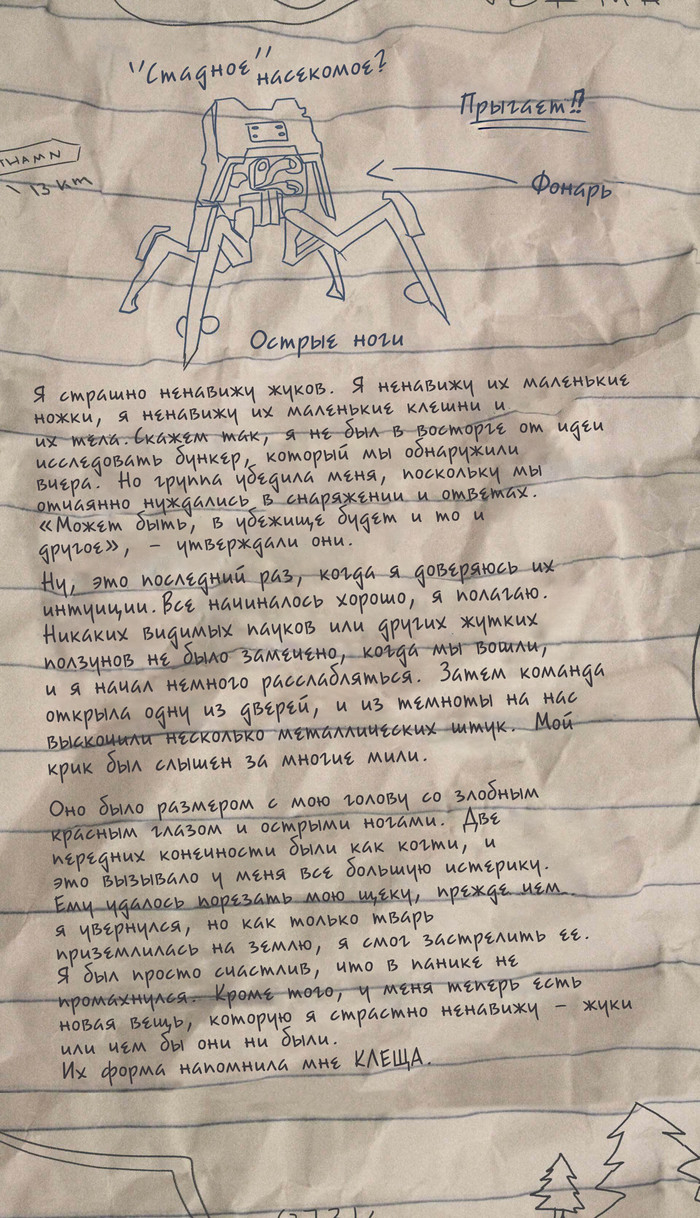 "Стадное" насекомое?
Прыгает!!
13 km
Фонарь
Острые ноги
Я страшно ненавижу жуков. Я ненавижу их маленькие
ножки, я ненавижу их маленькие клешни и
их тела. Скажем так, я не был в восторге от идеи
исследовать бункер, который мы обнаружили
вчера. Но группа убедила меня, поскольку мы
отчаянно нуждались в снаряжении и ответах.
«Может быть, в убежище будет и то и
другое», – утверждали они.
Ну, это последний раз, когда я доверяюсь их
интуиции. Все начиналось хорошо, я полагаю.
Никаких видимых пауков или других жутких
ползунов не было замечено, когда мы вошли,
и я начал немного расслабляться. Затем команда
открыла одну из дверей, и из темноты на нас
выскочили несколько металлических штук. Мой
крик был слышен за многие мили.
Оно было размером с мою голову со злобным
красным глазом и острыми ногами. Две
передних конечности были как когти, и
это вызывало у меня все большую истерику.
Ему удалось порезать мою щеку, прежде чем
я увернулся, но как только тварь
приземлилась на землю, я смог застрелить ее.
Я был просто счастлив, что в панике не
промахнулся. Кроме того, у меня теперь есть
новая вещь, которую я страстно ненавижу – жуки
или чем бы они ни были.
Их форма напомнила мне КЛЕЩА.